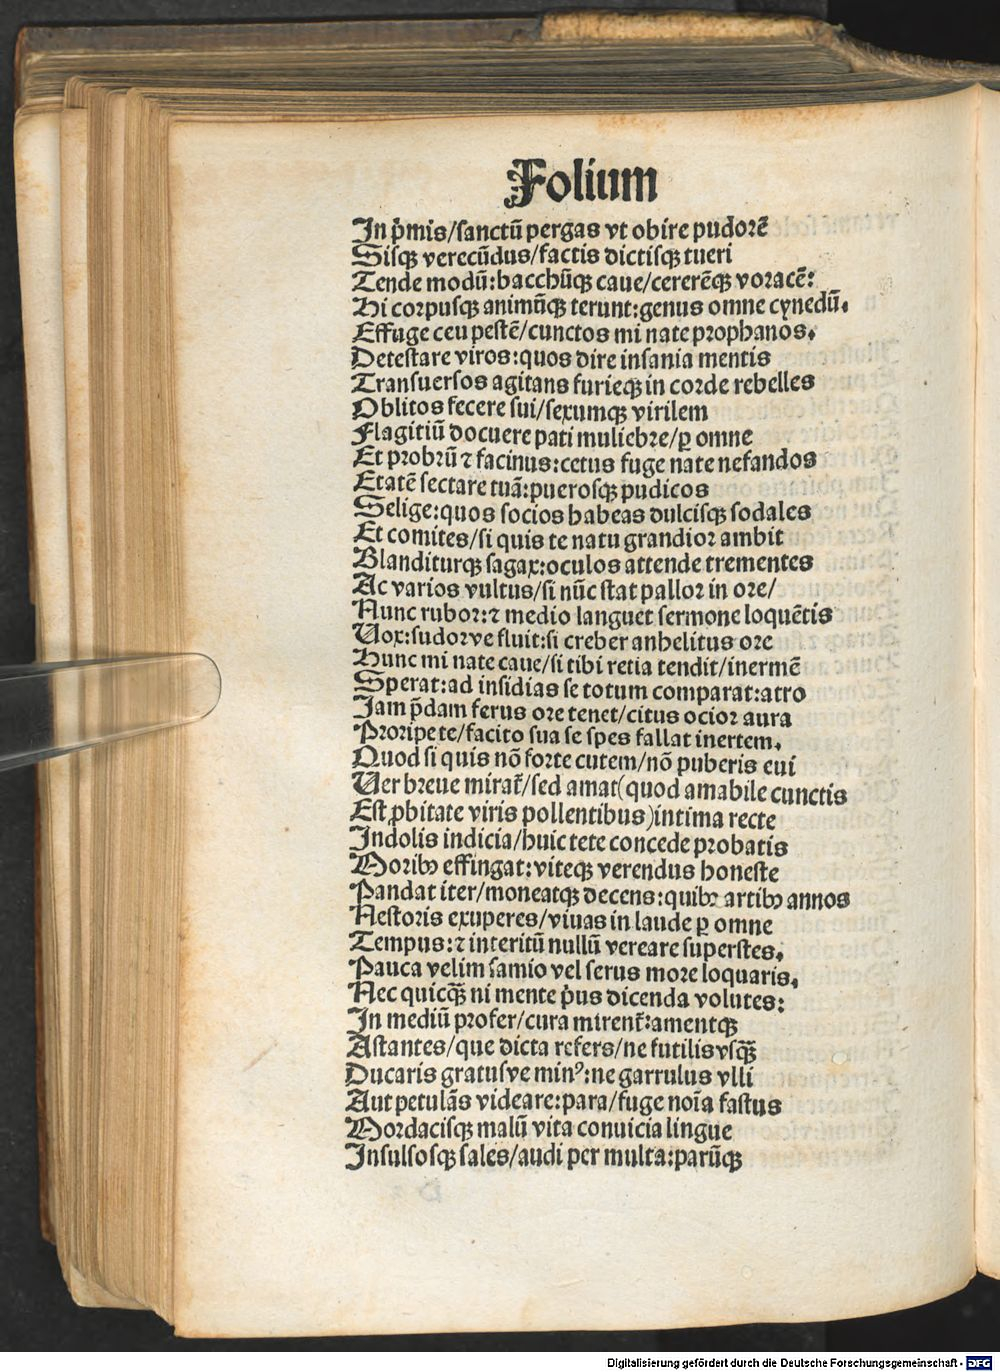 Folium
In p̄mis/sanctū pergas vt obire pudorē
Sisqꝫ verecūdus/factis dictisqꝫ tueri
Tende modū:bacchūqꝫ caue/cererēqꝫ voracē:
Hi corpusqꝫ animūqꝫ terunt:genus omne cynedū.
Effuge ceu pestē/cunctos mi nate prophanos.
Detestare viros:quos dire insania mentis
Transuersos agitans furieqꝫ in corde rebelles
Oblitos fecere sui/sexumqꝫ virilem
Flagitiū docuere pati muliebre/ꝑ omne
Et probrū ⁊ facinus:cetus fuge nate nefandos
Etatē sectare tuā:puerosqꝫ pudicos
Selige:quos socios habeas dulcisqꝫ sodales
Et comites/si quis te natu grandior ambit
Blanditurqꝫ sagax:oculos attende trementes
Ac varios vultus/si nūc stat pallor in ore/
Nunc rubor:⁊ medio languet sermone loquētis
Uox:sudorve fluit:si creber anhelitus ore
Hunc mi nate caue/si tibi retia tendit/inermē
Sperat:ad insidias se totum comparat:atro
Jam p̄dam ferus ore tenet/citus ocior aura
Proripe te/facito sua se spes fallat inertem.
Quod si quis nō forte cutem/nō puberis eui
Uer breue mirat̄/sed amat(quod amabile cunctis
Est ꝓbitate viris pollentibus)intima recte
Indolis indicia/huic tete concede probatis
Moribꝫ effingat:viteqꝫ verendus honeste
Pandat iter/moneatqꝫ decens:quibꝫ artibꝫ annos
Nestoris exuperes/viuas in laude ꝑ omne
Tempus:⁊ interitū nullū vereare superstes.
Pauca velim samio vel serus more loquaris.
Nec quicqꝫ̄ ni mente p̄us dicenda volutes:
In mediū profer/cura mirent̄:amentqꝫ
Astantes/que dicta refers/ne futilis vsqꝫ̄
Ducaris gratusve minꝰ:ne garrulus vlli
Aut petulās videare:para/fuge noīa fastus
Mordacisqꝫ malū vita conuicia lingue
Insulsosqꝫ sales/audi per multa:parūqꝫ
Digitalisierung gefördert durch die Deutsche Forschungsgemeinschaft - DFG